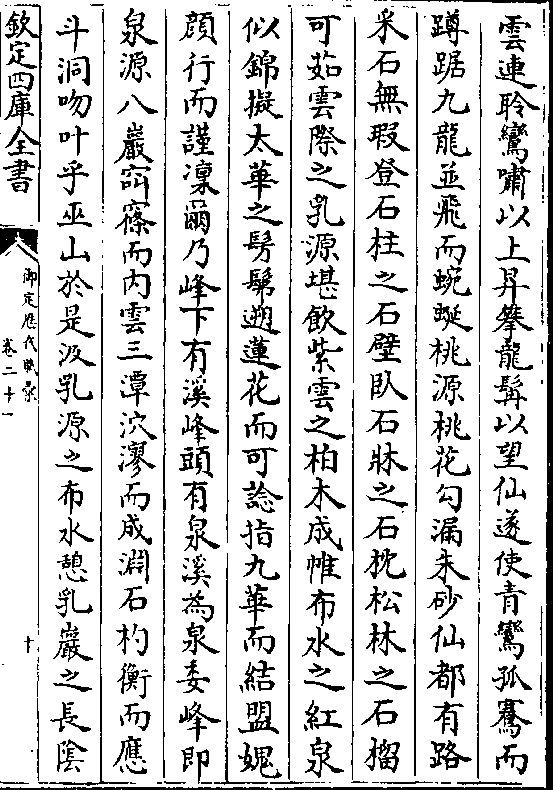 雲連聆鸞嘯以上昇攀龍髯以望仙遂使青鸞孤騫而
蹲踞九龍並飛而蜿蜒桃源桃花勾漏朱砂仙都有路
采石無瑕登石柱之石壁臥石牀之石枕松林之石榴
可茹雲際之乳源堪飲紫雲之柏木成帷布水之紅泉
似錦擬太華之髣髴遡蓮花而可諗指九華而結盟媿
顔行而謹凜爾乃峰下有溪峰頭有泉溪為泉委峰即
泉源八巖窌窱而内雲三潭泬漻而成淵石杓衡而應
斗洞吻叶乎巫山於是汲乳源之布水憩乳巖之長陰
欽定四庫全書
御定歷代賦彙
卷二十一
十